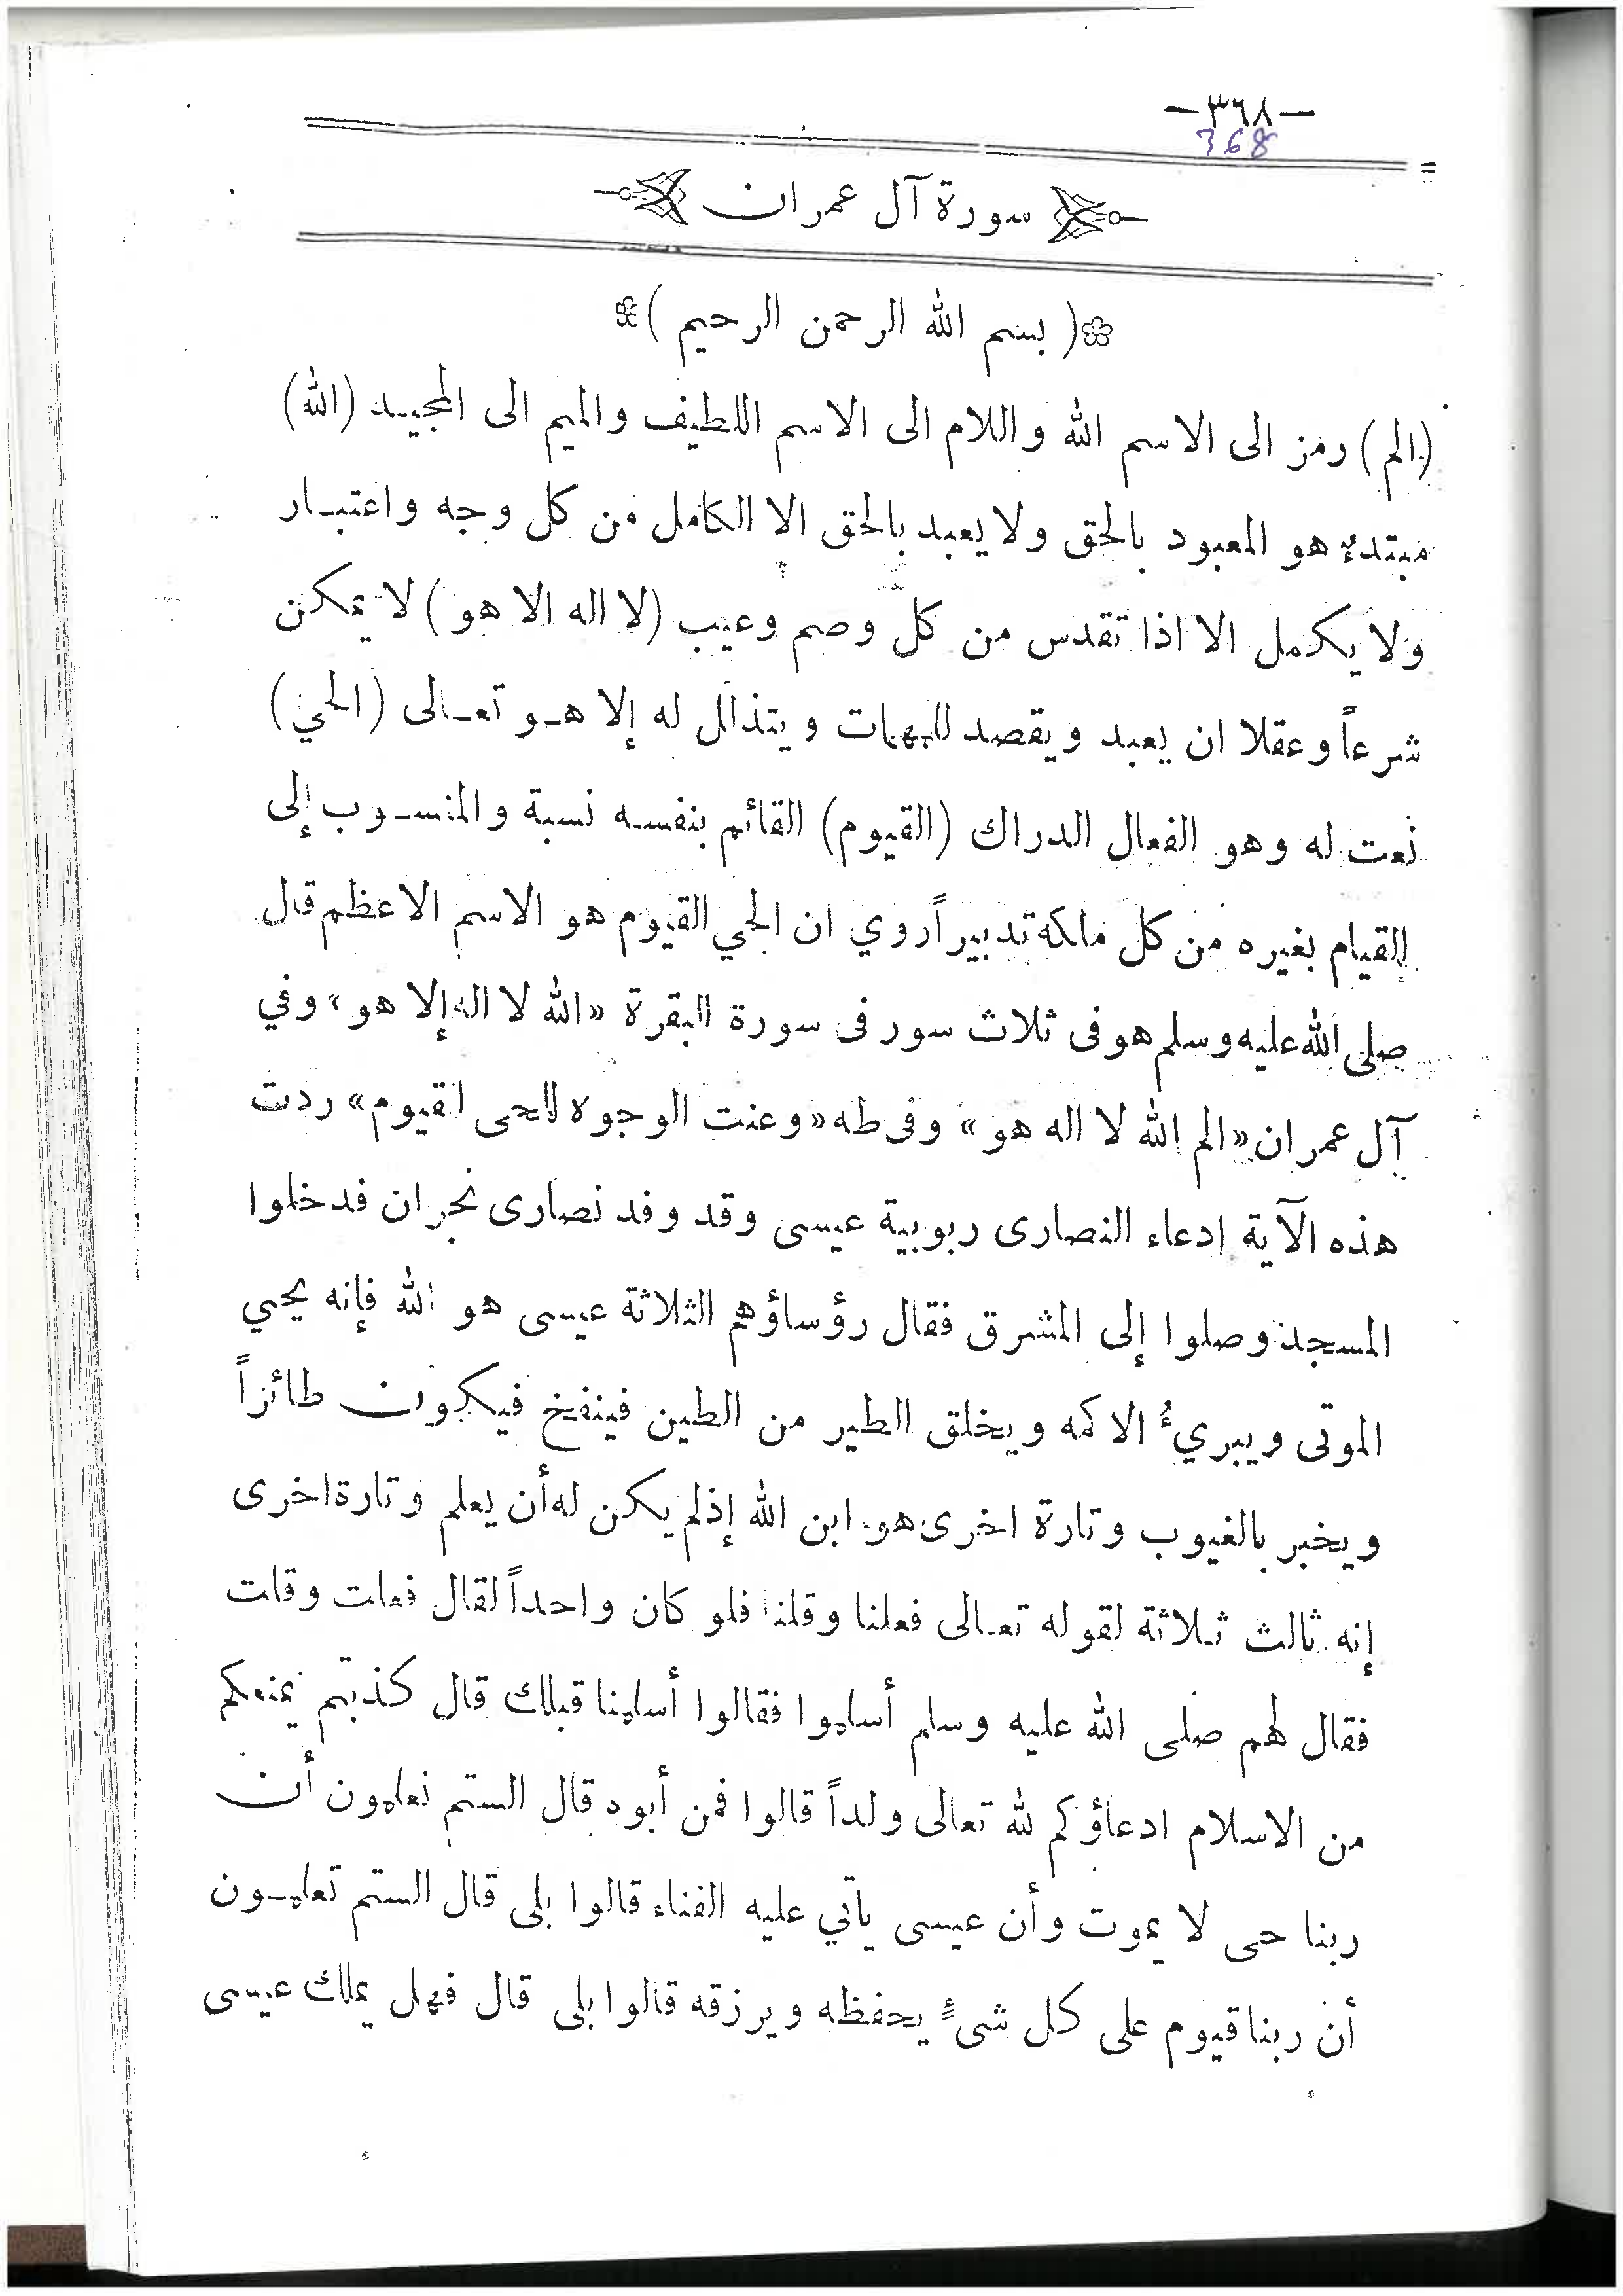 —٣٦٨—
368
سورة آل عمران
( بسم الله الرحمن الرحيم )
(الم) رمز الى الاسم الله واللام الى الاسم اللطيف والميم الى المجيد (الله)
مبتدء هو المعبود بالحق ولا يعبد بالحق الا الكامل من كل وجه واعتبار
ولا يكمل الا اذا تقدس من كل وصم وعيب (لا اله الا هو) لا يمكن
شرعاً وعقلا ان يعبد ويقصد للمهمات ويتذلل له إلا هو تعالى (الحي)
نعت له وهو الفعال الدراك (القيوم) القائم بنفسه نسبة والمنسوب إلى
القيام بغيره من كل ملكه تدبيراً روي ان الحي القيوم هو الاسم الاعظم قال
صلى الله عليه وسلم هو فى ثلاث سور فى سورة البقرة «الله لا اله إلا هو» وفي
آل عمران «الم الله لا اله هو» وفى طه «وعنت الوجوه للحى القيوم» ردت
هذه الآية إدعاء النصارى ربوبية عيسى وقد وفد نصارى نجران فدخلوا
المسجد وصلوا إلى المشرق فقال رؤساؤهم الثلاثة عيسى هو الله فإنه يحيي
الموتى ويبريءُ الاكمه ويخلق الطير من الطين فينفخ فيكون طائراً
ويخبر بالغيوب وتارة اخرى هو ابن الله إذ لم يكن له أن يعلم وتارة اخرى
إنه ثالث ثلاثة لقوله تعالى فعلنا وقلنا فلو كان واحداً لقال فعلت وقلت
فقال لهم صلى الله عليه وسلم أسلموا فقالوا أسلمنا قبلك قال كذبتم يمنعكم
من الاسلام ادعاؤكم لله تعالى ولداً قالوا فمن أبوه قال الستم تعلمون أن
ربنا حى لا يموت وأن عيسى يأتي عليه الفناء قالوا بلى قال الستم تعلمون
أن ربنا قيوم على كل شىءٍ يحفظه ويرزقه قالوا بلى قال فهل يملك عيسى